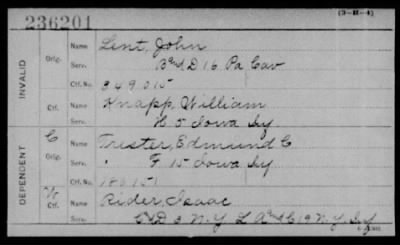 236201
(3-II-4)
INVALID
Orig.
Name Lent, John
Serv. B & D 16 Pa Cav
Ctf. No. 849015
Ctf.
Name Knapp, William
Serv. H 5 Iowa Iy
DEPENDENT
C
Orig.
Name Trester, Edmund C
Serv. F 15 Iowa Iy
Ctf. No. 186151
Ctf.
Name Rider, Isaac
Serv. D 3 N.Y L A 19 N.Y. Iy